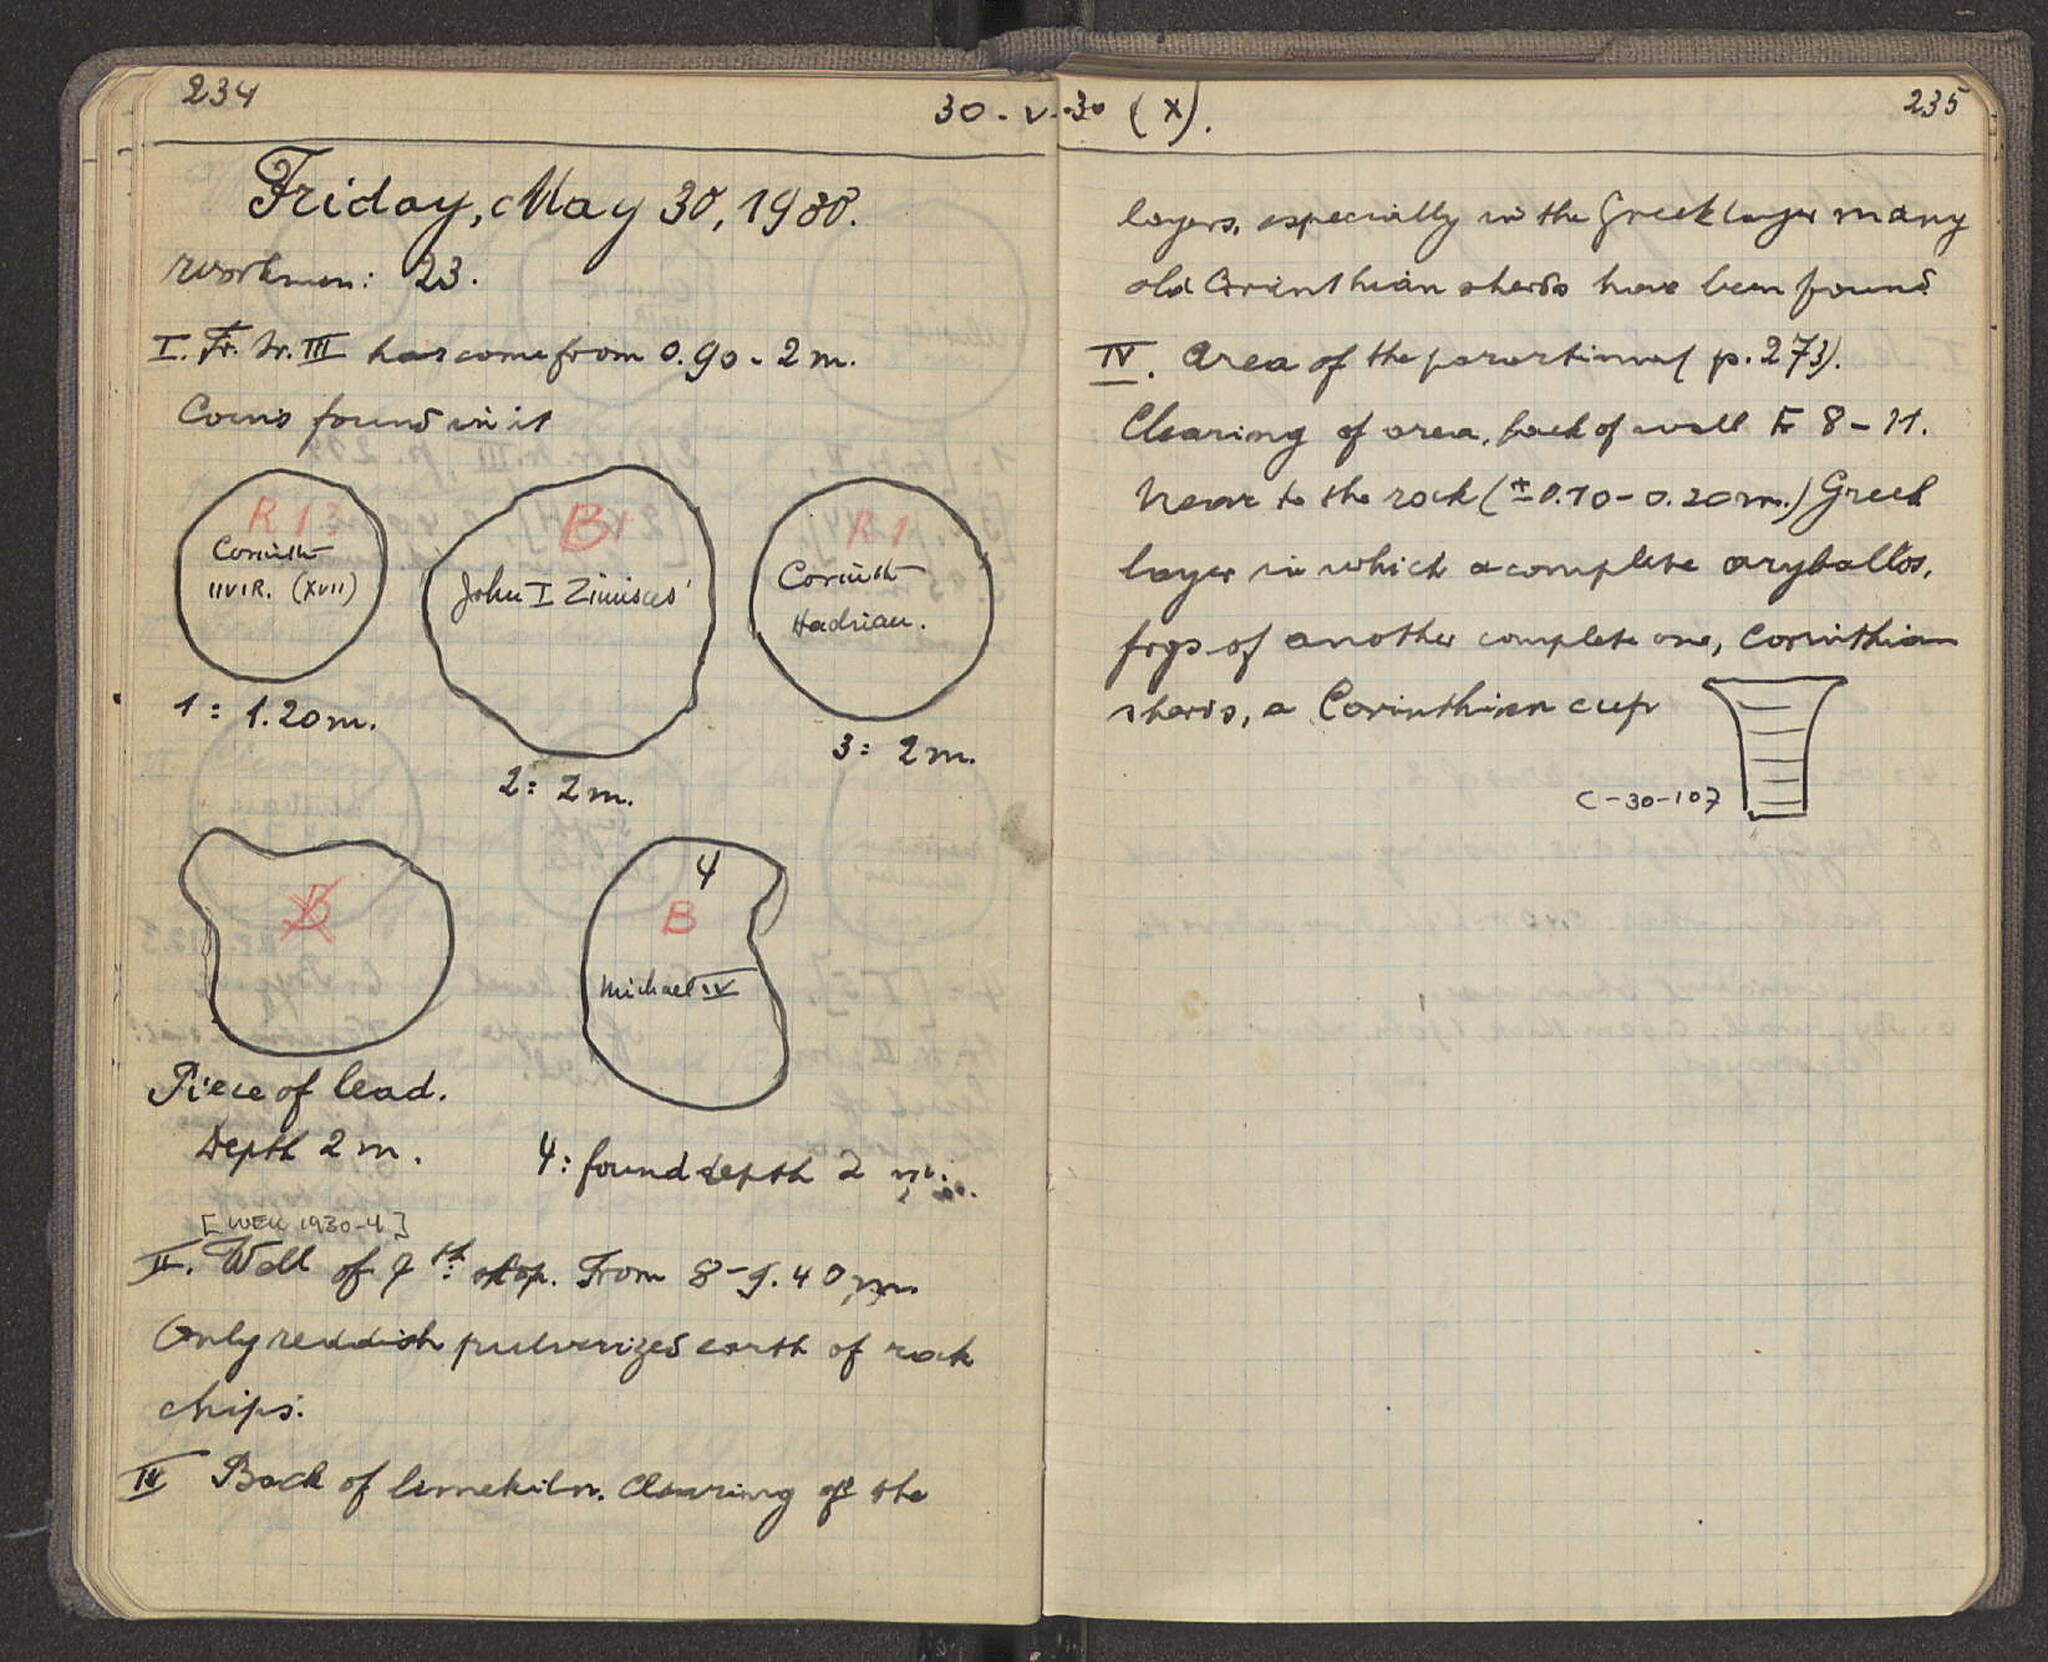 234
30-V-30 (X).
235
Friday, May 30, 1930.
Workmen: 23.
I. Fr. Tr. III has come from 0.90-2 m.
Coins found in it
R 1 3
Corinth
IIVIR. (XVII)
B+
John I Zimisces
R 1
Corinth
Hadrian.
1: 1.20 m.
2: 2 m.
3: 2 m.
B
4
B
Michael IV
Piece of lead.
Depth 2 m.
4: found depth 2 m.
[WELL 1930-4]
II. Well of 7th: shop. From 8-9.40 m
Only reddish pulverized earth of rock
chips.
III Back of limekiln. Clearing of the
layers, especially in the Greek layer many
old Corinthian sherds have been found
IV. Area of the (p. 273).
Clearing of area, back of wall Fr 8-11.
Near to the rock (± 0.10-0.20 m.) Greek
layer in which a complete aryballos,
frgs of another complete one, Corinthian
sherds, a Corinthian cup
C-30-107